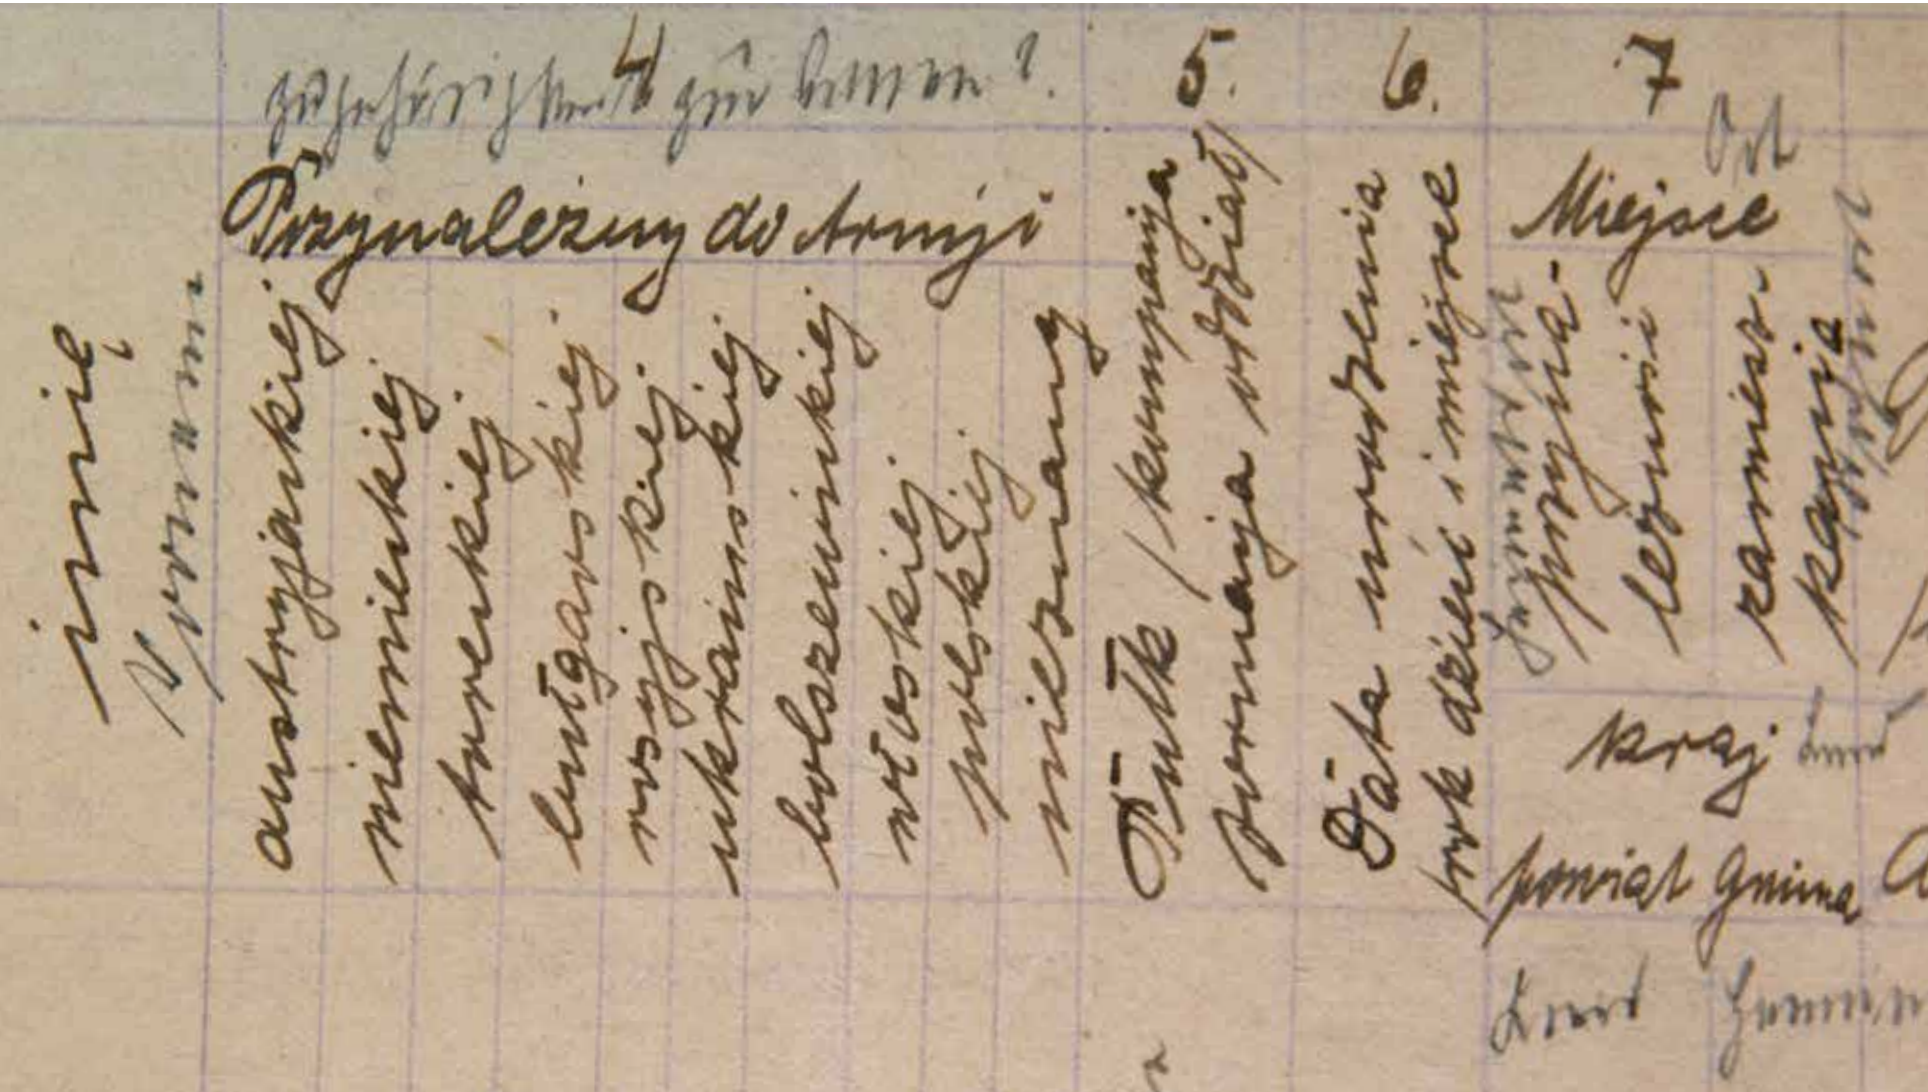 imię
Vorname
4
Zugehörigkeit zur Armee?
Przynależny do Armji
austryjackiej
niemieckiej
tureckiej
bułgarskiej
rosyjskiej
ukrainskiej
bolszewickiej
włoskiej
polskiej
nieznany
5.
Pułk / kompanja
formacja oddział /
6.
Data urodzenia
rok dzień i miejsce
7
Ort
Miejsce
przyna-
leżności
zamiesz-
kania
kraj Land
powiat Gmina
Kreis